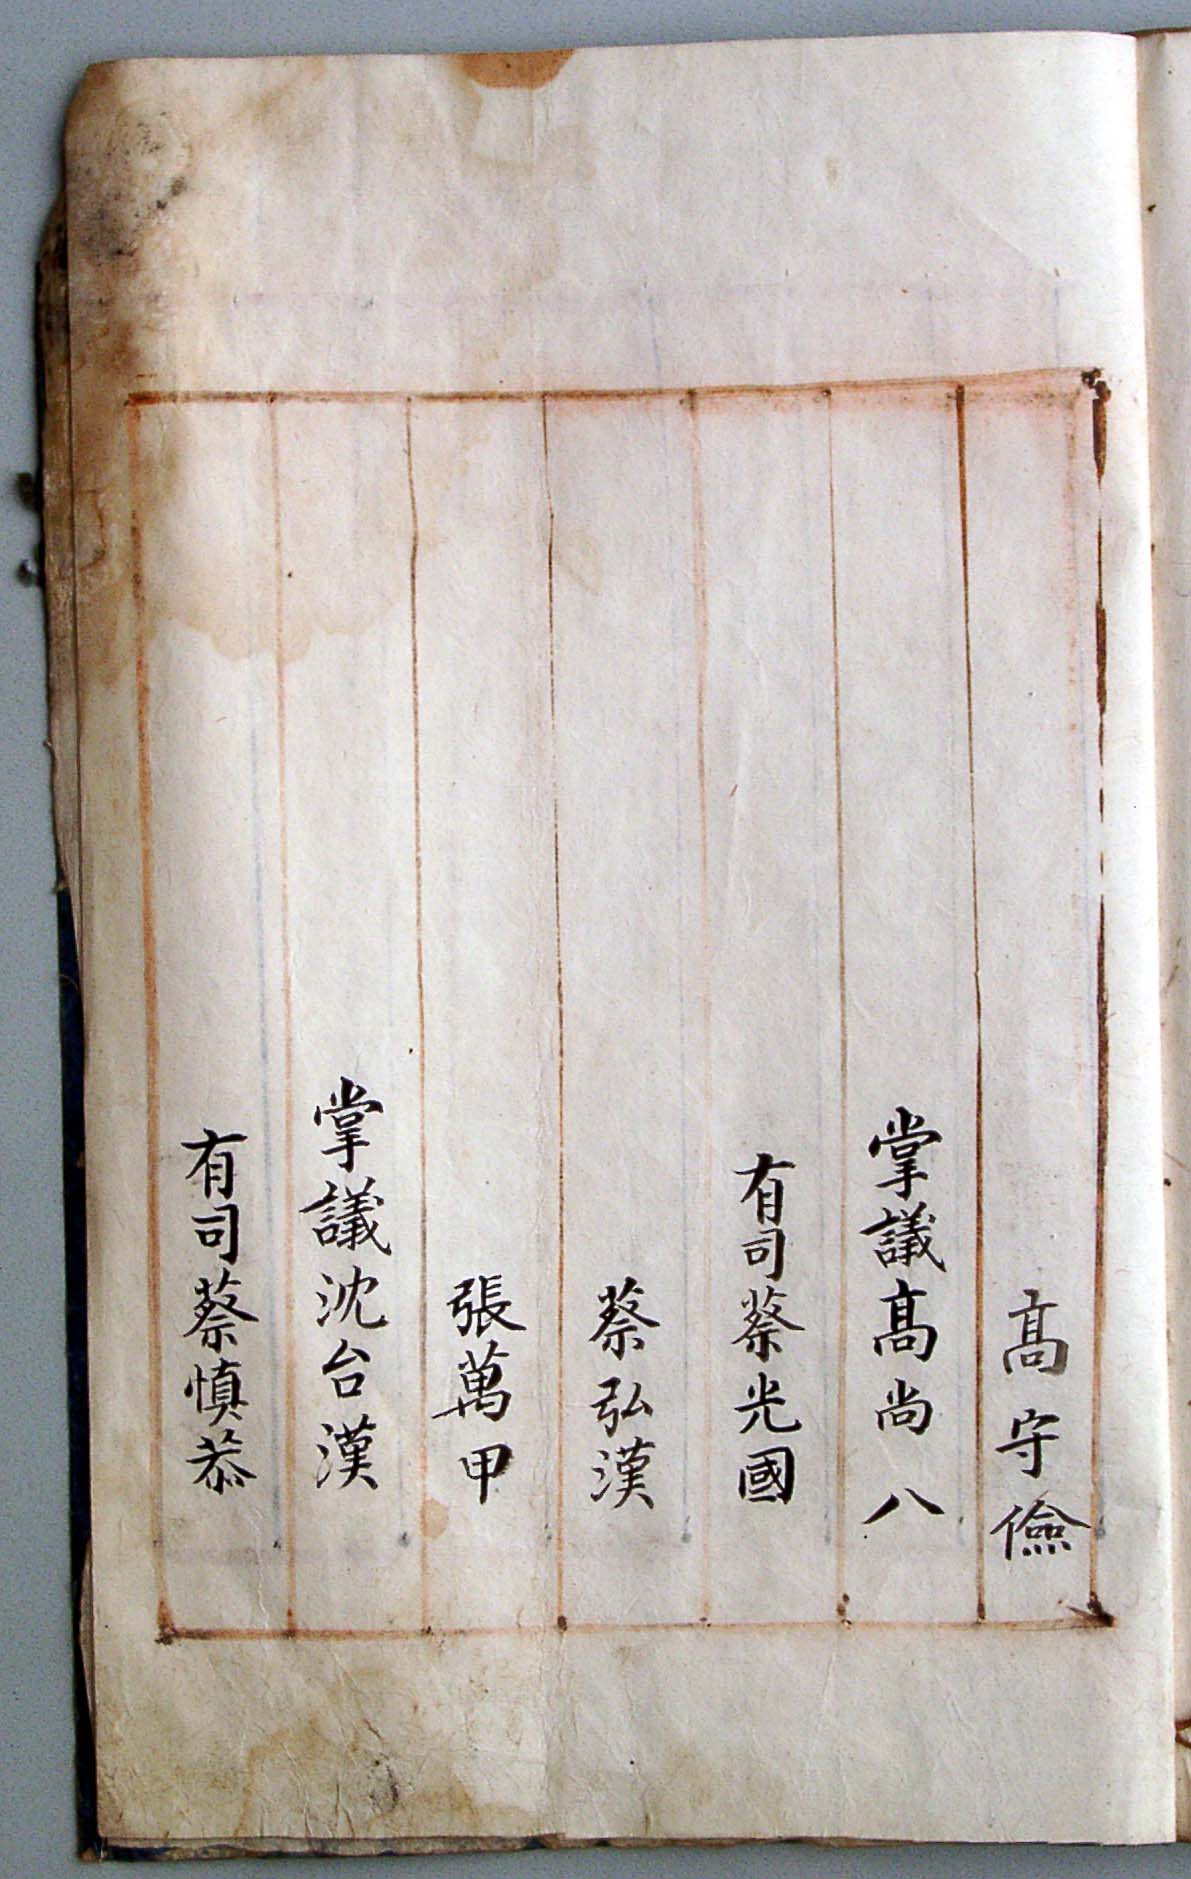 髙守儉
掌議髙尚八
有司蔡光國
蔡弘漢
張萬甲
掌議沈台漢
有司蔡慎恭